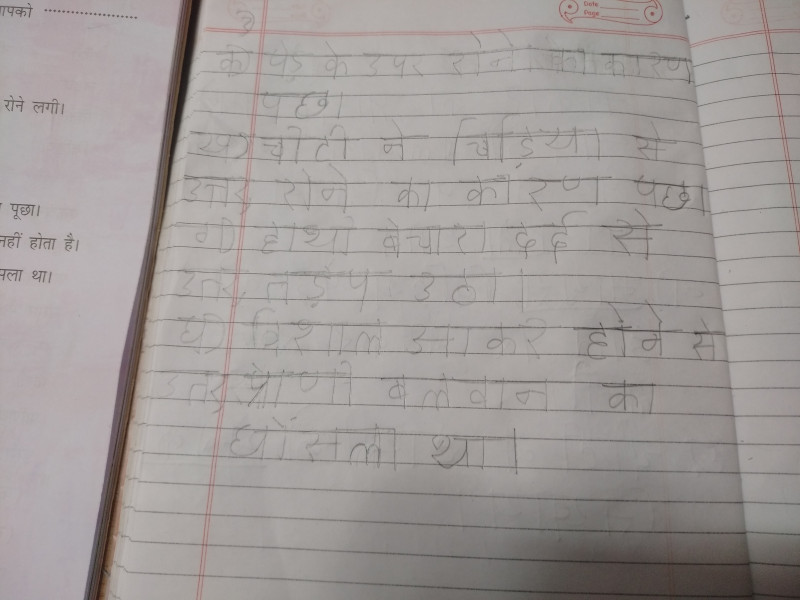 ापको ......................
रोने लगी।
पूछा।
नहीं होता है।
ला था।
Date
Page
2)
क) पेड़ के उपर रोने का कारण
पछा
ख) चींटी ने चिड़िया से
उत्तर, रोने का कारण पछा
ग) हाथी बेचारा दर्द से
उत्तर, तड़प उठा।
घ) विशाल आकार होने से
उत्तर, प्राणी बलवान का
घोंसला था।